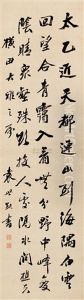 太乙近天都連山到海隅白雲
回望合青靄入看無分野中峰變
陰晴衆壑殊欲投人處宿隔水問樵夫
橫田大雅之屬
書